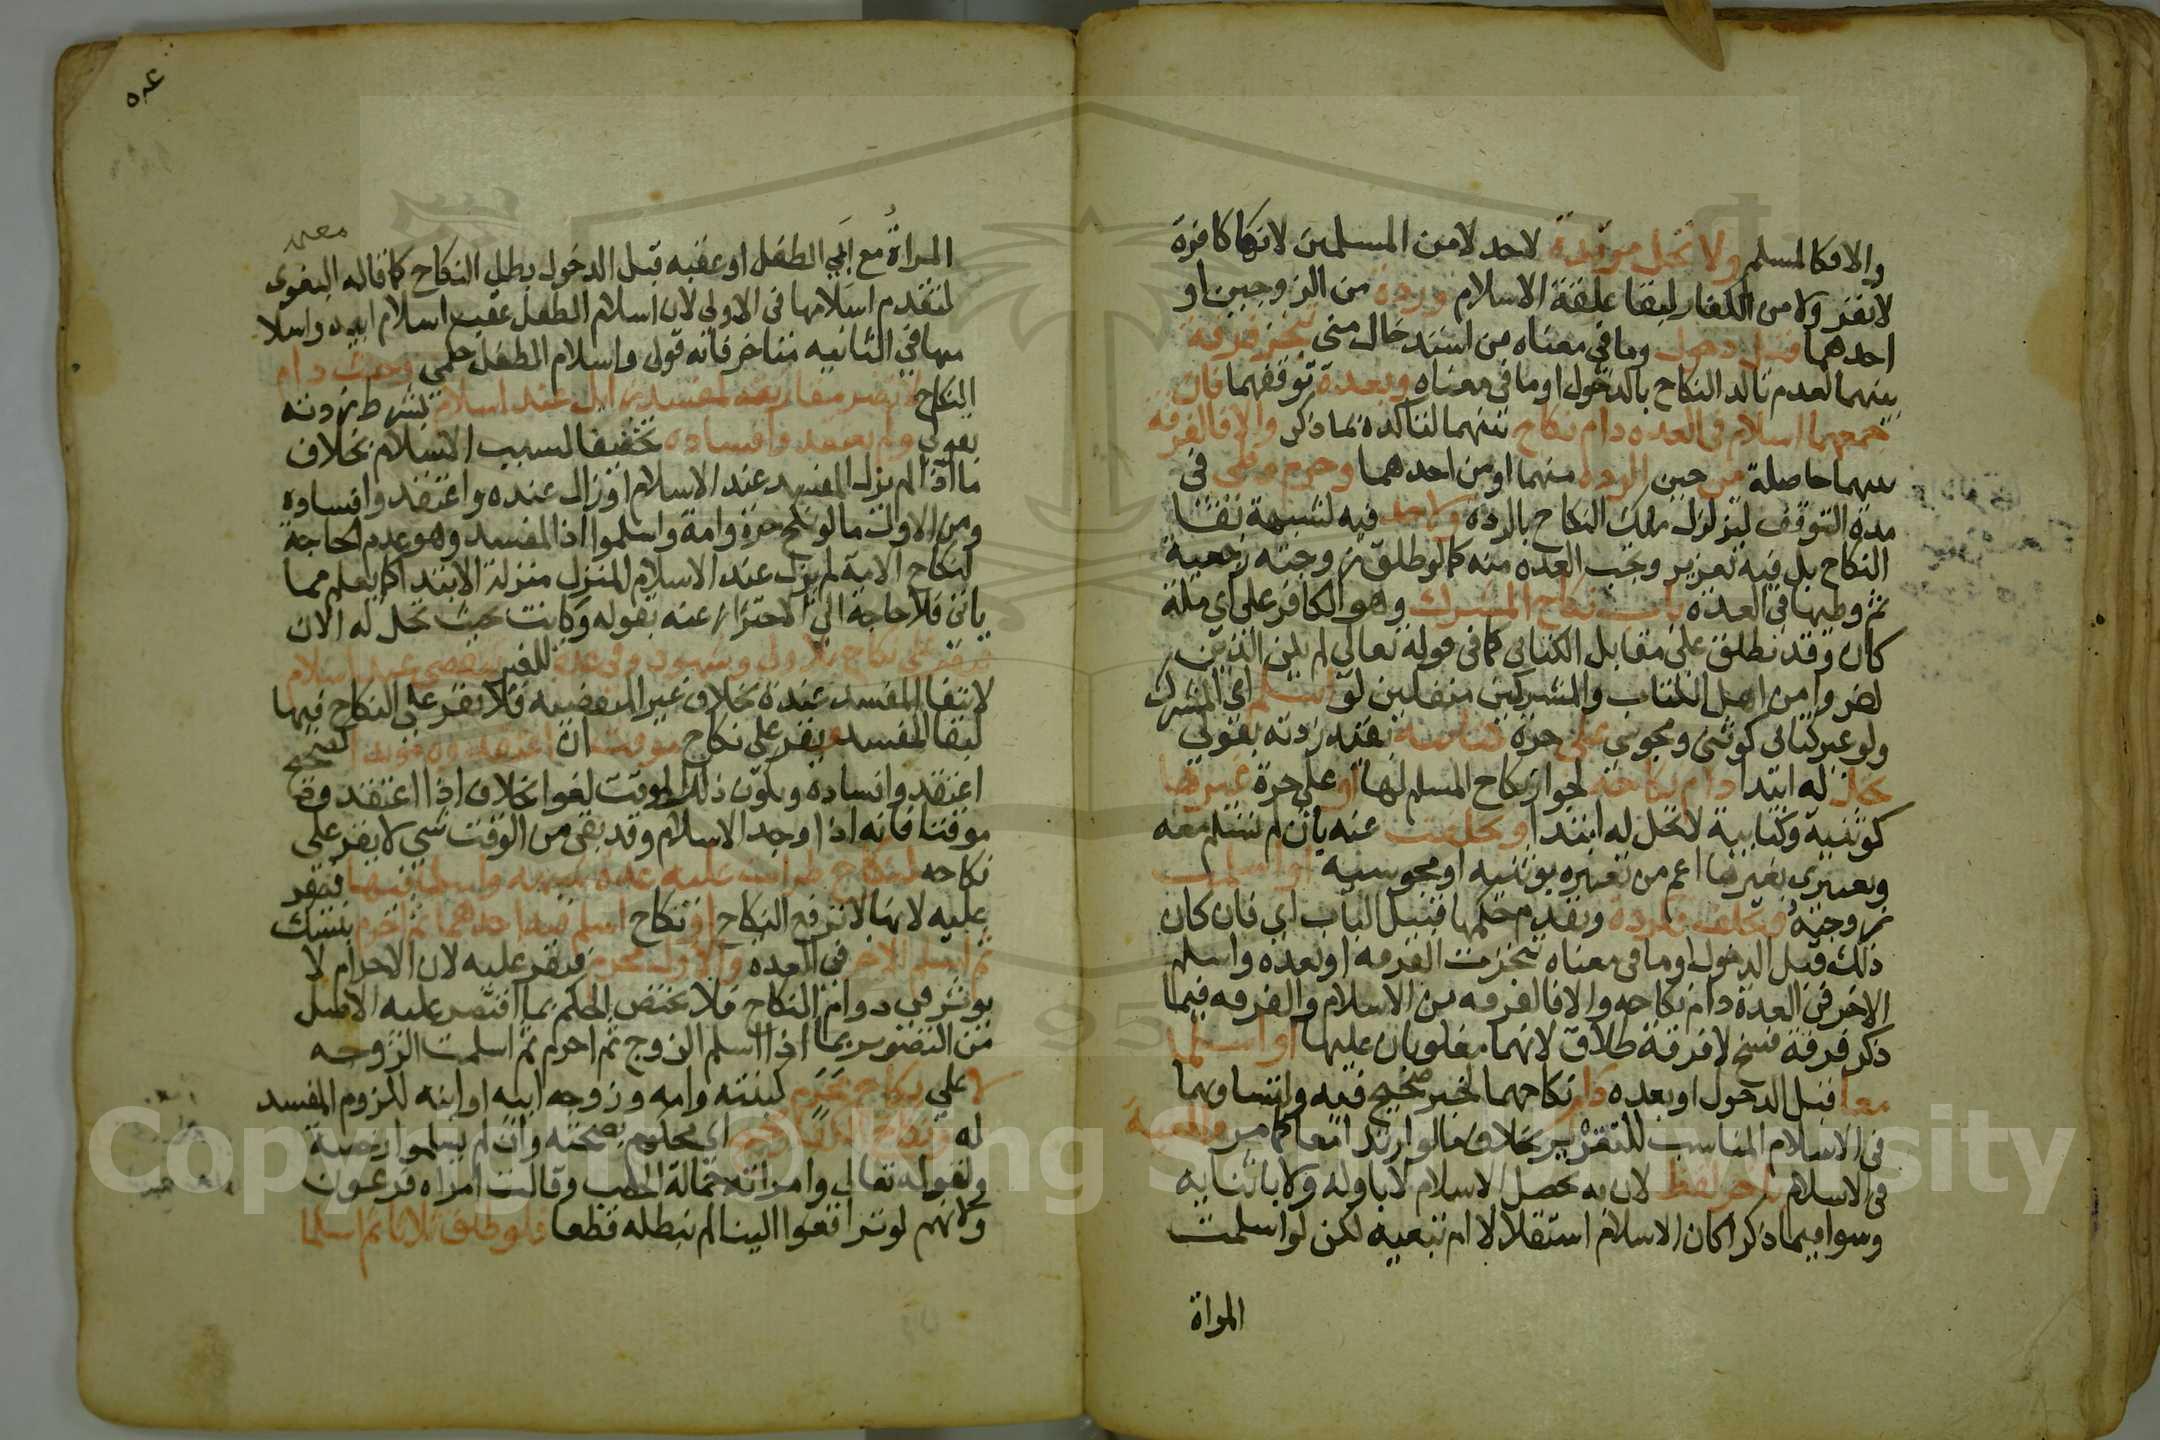 والا فكالمسلم ولا تحل مرتدة لاحد لا من المسلمين لانها كافرة
لا تقر ولا من الكفار لبقا علقة الاسلام وردة من الزوجين او
احدهما قبل دخول وما في معناه من استدخال مني تنجز فرقة
بينهما لعدم تاكد النكاح بالدخول او ما في معناه وبعده توقفهما فان
جمعهما اسلام في العدة دام نكاح بينهما لتاكده بما ذكر والا فالفرقة
بينهما حاصلة من حين الردة منهما او من احدهما وحرم وطي في
مدة التوقف لتزلزل ملك النكاح بالردة ولا حد فيه لشبهة بقا
النكاح بل فيه تعزير وتجب العدة منه كما لو طلق زوجته رجعية
ثم وطيها في العدة باب نكاح المشرك وهو الكافر على اي ملة
كان وقد يطلق على مقابل الكتابي كما في قوله تعالى لم يكن الذين
كفروا من اهل الكتاب والمشركين منفكين لو اسلم اي المشرك
ولو غير كتابي كوثني ومجوسي على حرة كتابية بقيد زدته بقولي
تحل له ابتدا دام نكاحه لجواز نكاح المسلم لها او على حرة غيرها
كوثنية وكتابية لا تحل له ابتدا وتخلفت عنه بان لم تسلم معه
وتعبيري بغيرها اعم من تعبيره بوثنية او مجوسية او اسلمت
زوجته وتخلف فكردة وتقدم حكمها قبيل الباب اي فان كان
ذلك قبل الدخول او ما في معناه تنجزت الفرقة او بعده واسلم
الاخر في العدة دام نكاحه والا فالفرقة من الاسلام والفرقة فيما
ذكر فرقة فسخ لا فرقة طلاق لانهما مغلوبان عليها او اسلما
معا قبل الدخول او بعده دام نكاحهما لخبر صحيح فيه ولتساويهما
في الاسلام المناسب للتقرير بخلاف ما لو ارتدا معا كما مر والمعية
في الاسلام باخر لفظ لان به يحصل الاسلام لا باوله ولا باثنايه
وسوا فيما ذكر اكان الاسلام استقلالا ام تبعية لكن لو اسلمت
المراة
المراة مع ابي الطفل او عقبه قبل الدخول بطل النكاح كما قاله البغوي
لتقدم اسلامها في الاولى لان اسلام الطفل عقب اسلام ابيه واسلا
مها في الثانية متاخر فانه قول واسلام الطفل حكمي وحيث دام
النكاح لا تضر مقارنته لمفسد زايل عند اسلام بشرط زدته
بقولي ولم يعتقدوا فساده تخفيفا لسبب الاسلام بخلاف
ما اذا لم يزل المفسد عند الاسلام او زال عنده واعتقدوا فساده
ومن الاول ما لو نكح حرة وامة واسلموا اذ المفسد وهو عدم الحاجة
لنكاح الامة لم يزل عند الاسلام المنزل منزلة الابتدا كما يعلم مما
ياتي فلا حاجة الى الاحتراز عنه بقوله وكانت بحيث تحل له الان
فيقر على نكاح بلا ولي وشهود وفي عدة للغير تنقضي عند اسلام
لانتفا المفسد عنده بخلاف غير المنقضية فلا يقر على النكاح فيها
لبقا المفسد ويقر على نكاح موقت ان اعتقدوه موبدا كصحيح
اعتقدوا فساده ويكون ذكر الوقت لغوا بخلاف اذا اعتقدوه
موقتا فانه اذا وجد الاسلام وقد بقي من الوقت شي لا يقر على
نكاحه كنكاح طرات عليه عدة شبهة واسلما فيها فيقر
عليه لانها لا ترفع النكاح او نكاح اسلم فيه احدهما ثم احرم بنسك
ثم اسلم الاخر في العدة والاول محرم فيقر عليه لان الاحرام لا
يوثر في دوام النكاح فلا يختص الحكم بما اقتصر عليه الاصل
من التصوير بما اذا اسلم الزوج ثم احرم ثم اسلمت الزوجة
لا على نكاح محرم كبنته وامه وزوجه ابيه او ابنه للزوم المفسد
له ونكاح الكفار صحيح اي محكوم بصحته وان لم يسلموا رخصة
ولقوله تعالى وامراته حمالة الحطب وقالت امراة فرعون
ولانهم لو ترافعوا الينا لم نبطله قطعا فلو طلق ثلاثا ثم اسلما